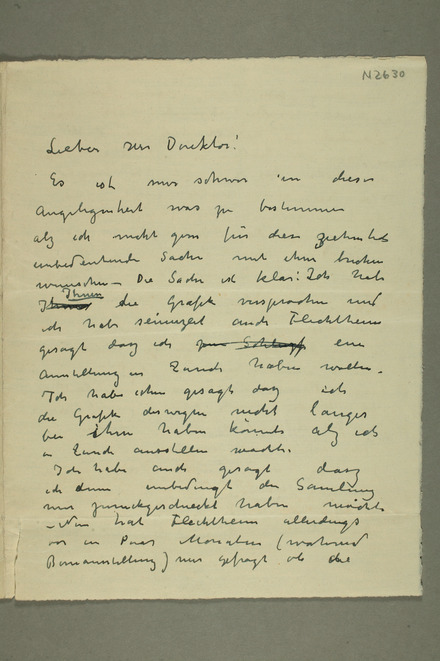 N2630
Lieber Herr Direktor!
Es ist mir schwer in dieser
Angelegenheit was zu bestimmen
alz ich nicht gern für diese ziemlich
unbedeutende Sache mit ihm brechen
wünschte – Die Sache ist klar: Ich hab
Ihnen die Grafik versprochen und
ich habe seinerzeit auch Flechtheim
gesagt daz ich zum Schluss eine
Ausstellung in Zürich haben wollte.
Ich habe ihm gesagt daz ich
die Grafik deswegen nicht länger
bei ihm haben könnte alz ich
in Zürich ausstellen möchte.
Ich habe auch gesagt daz
ich dann unbedingt die Samlung
mir zurückgeschickt haben möchte
– Nun hat Flechtheim allerdings
vor ein Paar Monaten (während
Bernausstellung) mir gefragt ob die